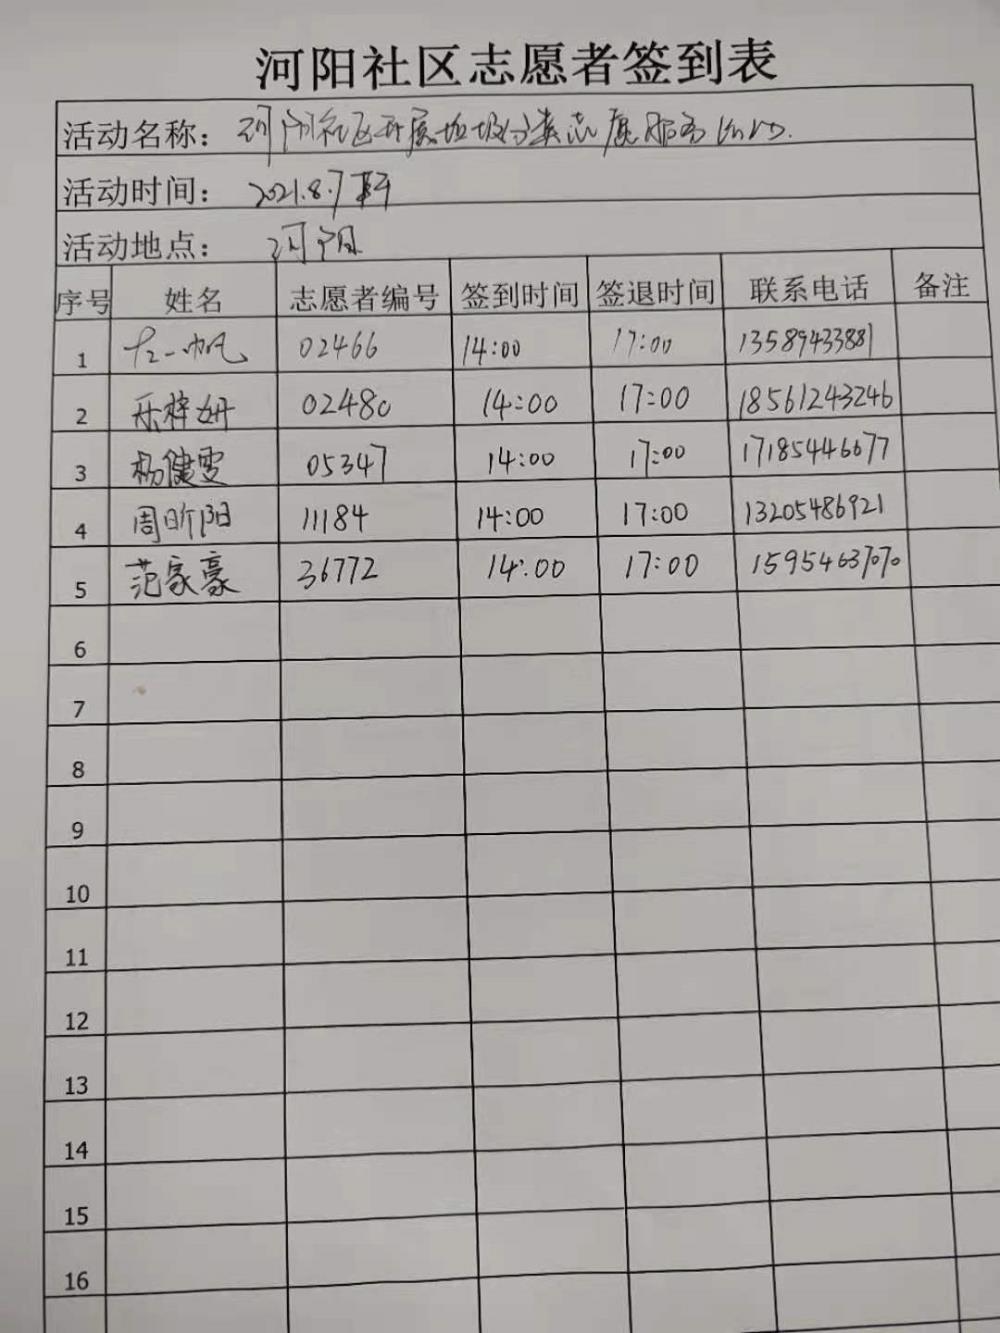 河阳社区志愿者签到表
活动名称：河阳社区开展垃圾分类志愿服务
活动时间：2021.8.7
活动地点：河阳
序号 姓名 志愿者编号 签到时间 签退时间 联系电话 备注
1 一帆 02466 14:00 17:00 13589433881
2 乐梓妍 02480 14:00 17:00 18561243246
3 杨健雯 05347 14:00 17:00 17185446677
4 周昕阳 11184 14:00 17:00 13205486921
5 范家豪 36772 14:00 17:00 15954637070
6
7
8
9
10
11
12
13
14
15
16